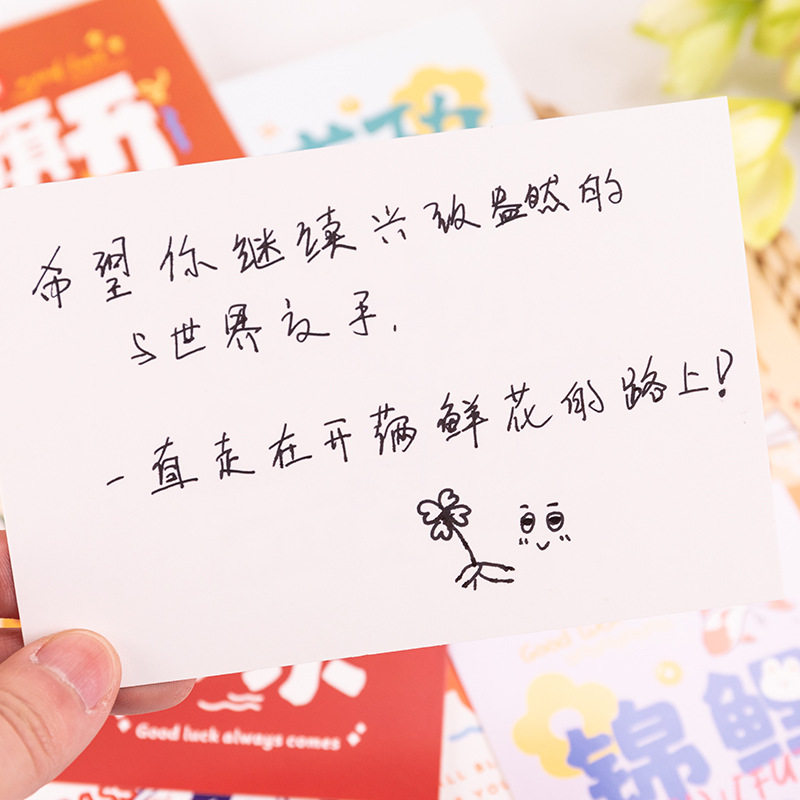 Good luck
希望你继续兴致盎然的
与世界交手.
一直走在开满鲜花的路上!
Good luck always comes
锦鲤